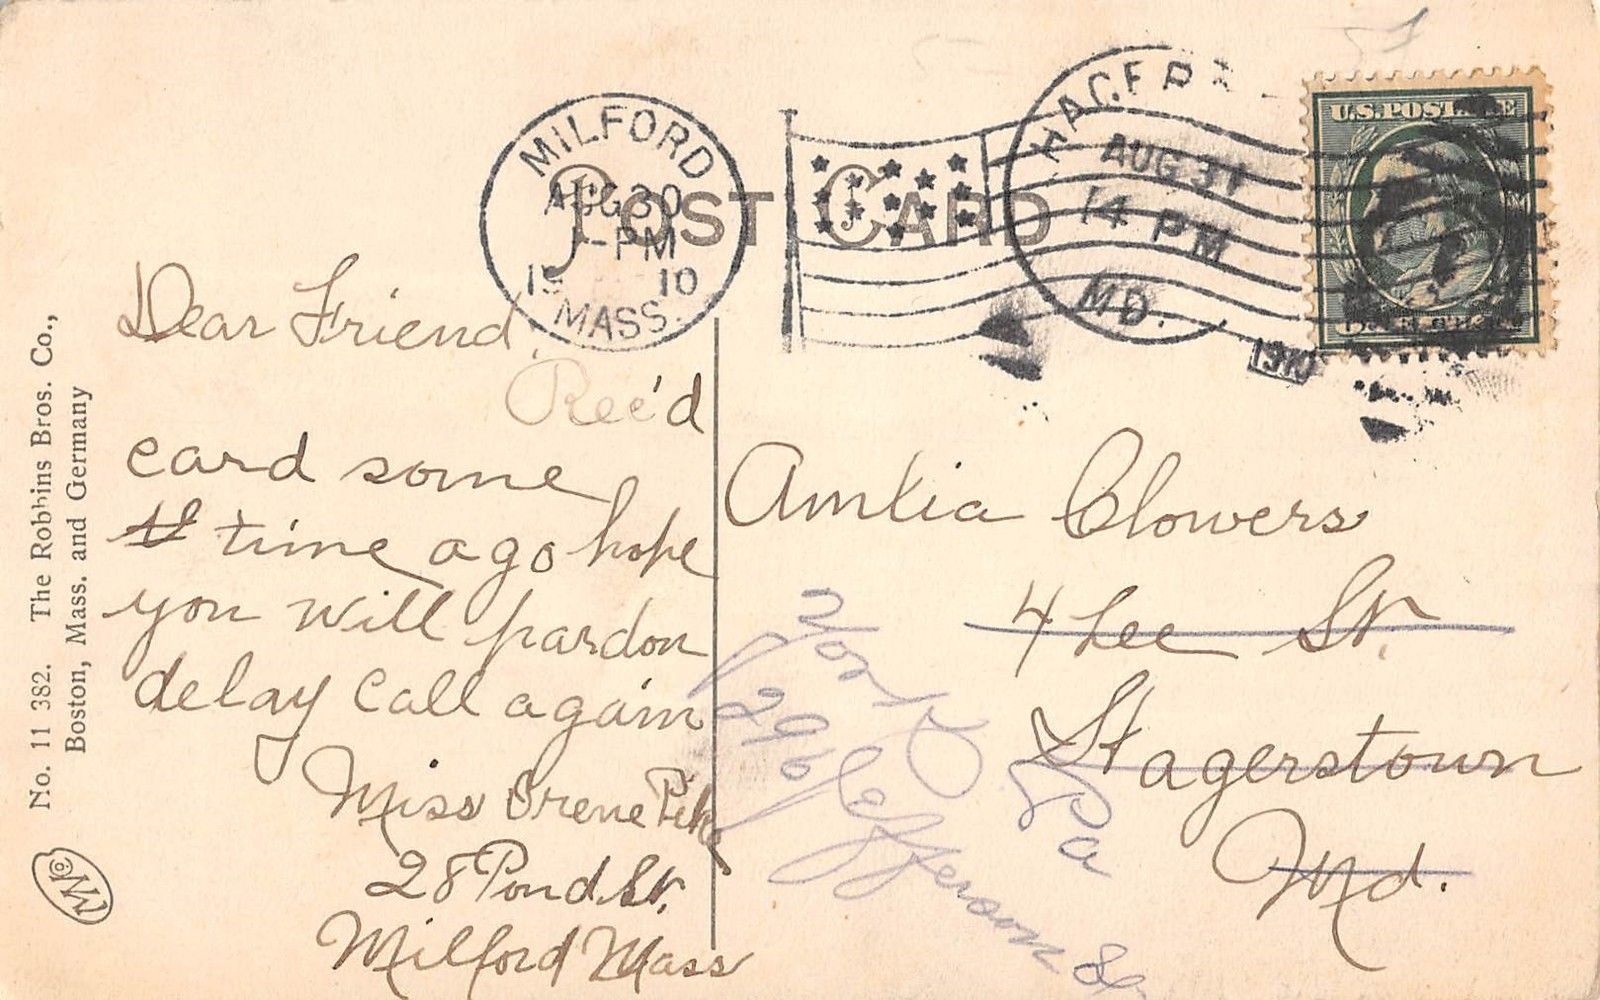 POST CARD
MILFORD
AUG 30
-PM
19 10
MASS.
HAGER
AUG 31
14 PM
MD.
1910
U.S. POSTAGE
Dear Friend,
Rec'd
card some
time ago hope
you will pardon
delay call again
Miss Irene Pike
28 Pond St.
Milford Mass
Clowers
4 Lee St.
Hagerstown
Md.
York Pa
296 Jefferson St
No. 11 382. The Robbins Bros. Co.,
Boston, Mass. and Germany